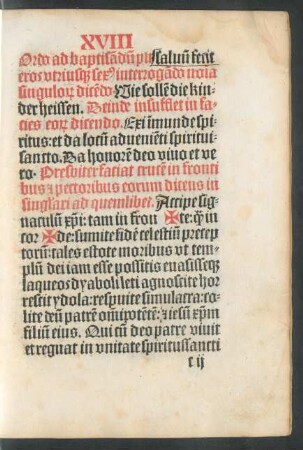 XVIII
Ordo ad baptisādūn pu
eros vtriusqȝ sexꝰ interrogādo noīa
singulorꝝ dicēdo. Wie sollē die kin
der heissen. Deinde insufflet in fa
cies eorꝝ dicendo. Exi īmunde spi
ritus: et da locū advenienti spiritui
sancto. Da honorē deo vivo et ve
ro. Presbiter faciat crucē in fronti
bus ⁊ pectoribus eorum dicens in
singlari ad quemlibet. Accipe sig
naculū xp̄i: tam in fron ✠ te: qͣ̄ in
cor ✠ de: sumite fidē celestiū precep
torū: tales estote moribus vt tem⸗
plū dei iam esse possitis euasisseqȝ
laqueos dyaboli et i agnoscite hor
rescit ydola: respuite simulacra: co⸗
lite deū patrē om̄ipotētē: ⁊ iesū xp̄m
filiū eius. Qui cū deo patre viuit
et regnat in vnitate spiritussancti
c ij